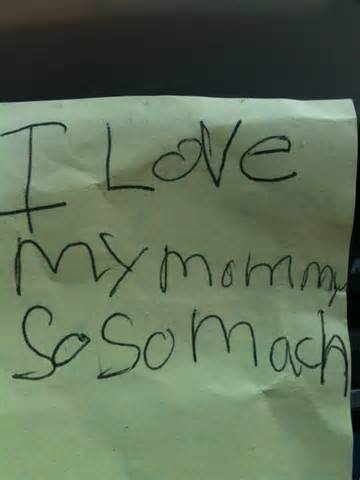 I Love
my mommy
So So mach